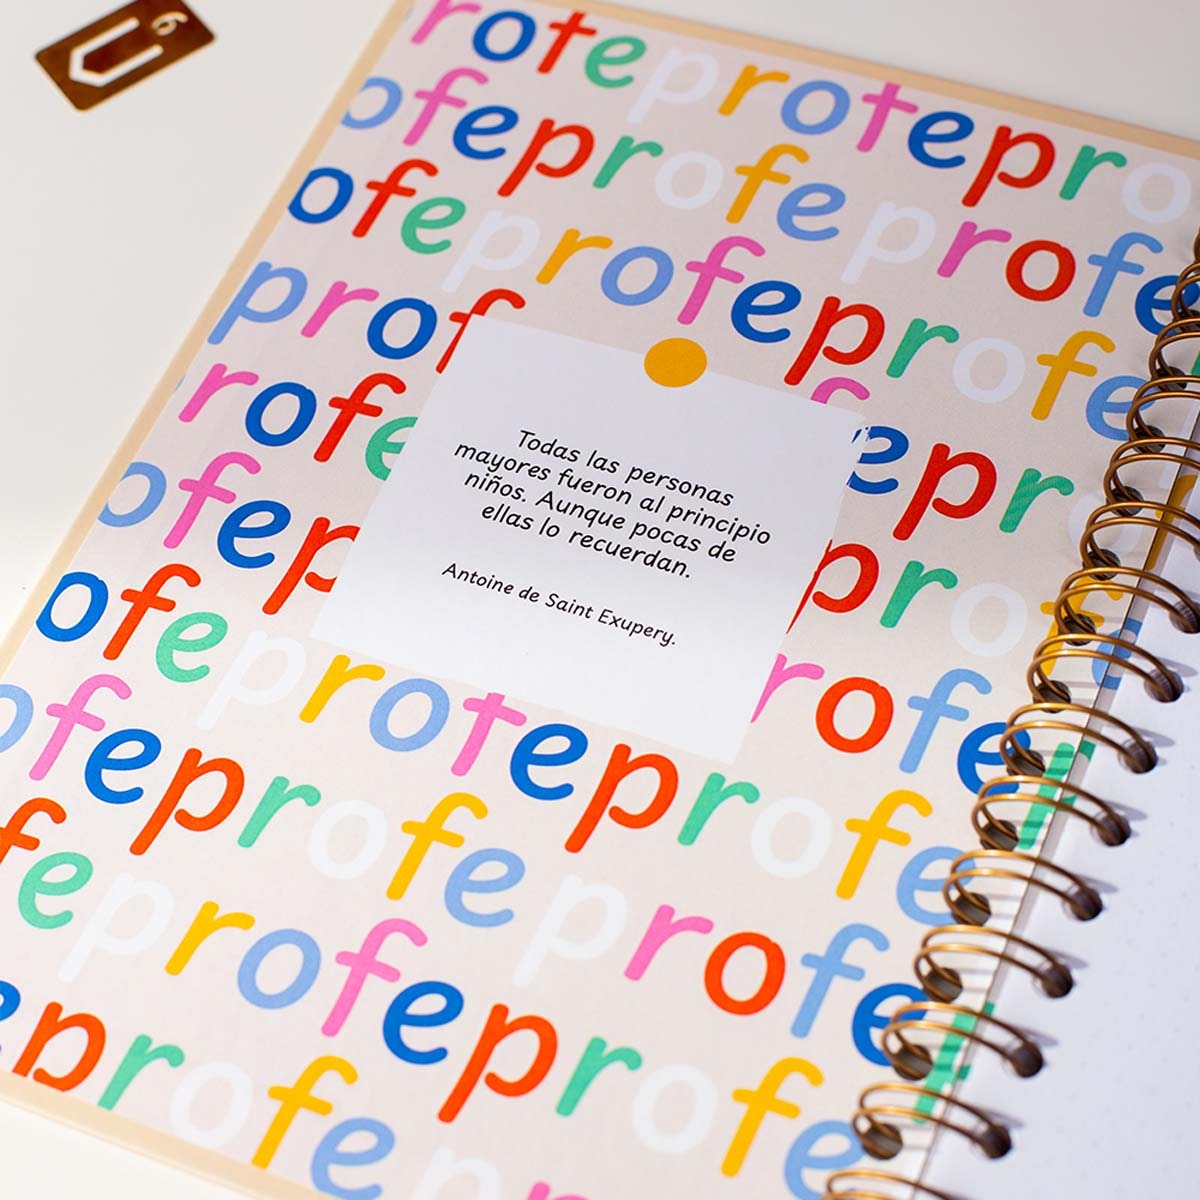 roteprotepro
ofeprofeprofe
ofeprofeprofe
prof profe
rofe epr
ofep profe
ofeproteprofe
ofeprofeprofe
feprofeprofe
eprofeprofe
Todas las personas
mayores fueron al principio
niños. Aunque pocas de
ellas lo recuerdan.
Antoine de Saint Exupery.
9